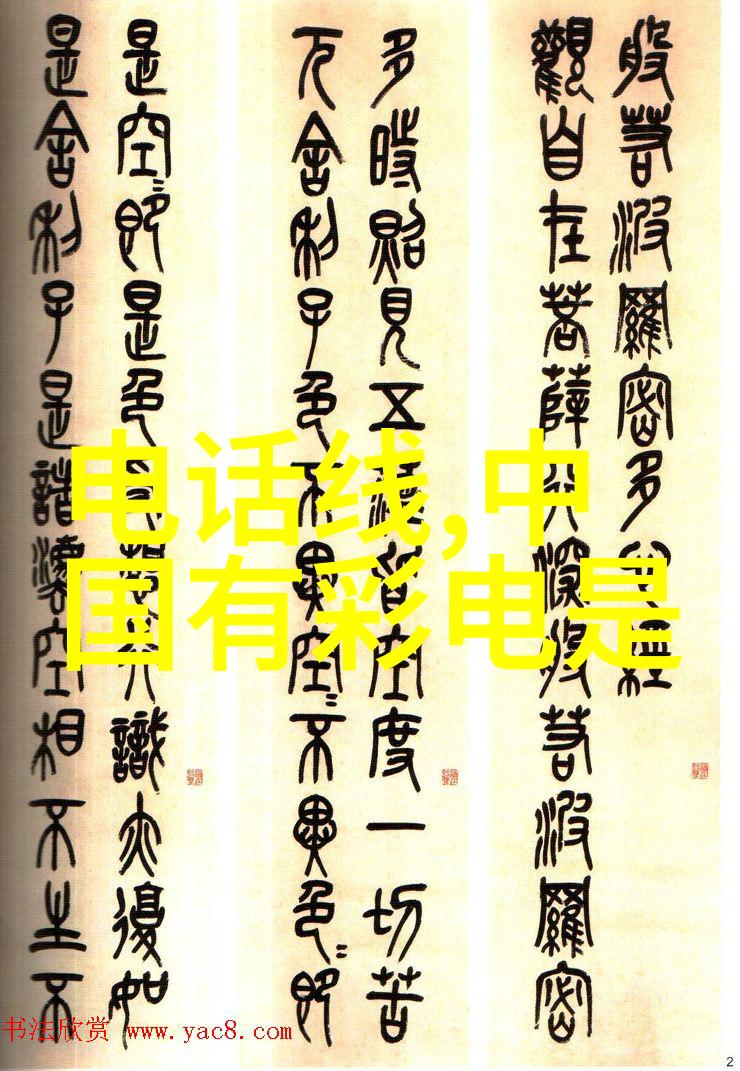 般若波羅密多心經
觀自在菩薩行深般若波羅密
多時照見五蘊皆空度一切苦
厄舍利子色不異空〻不異色〻即
是空〻即是色受想行識亦復如
是舍利子是諸灋空相不生不
电话线,中
国有彩电是
书法欣赏 www.yac8.com
2